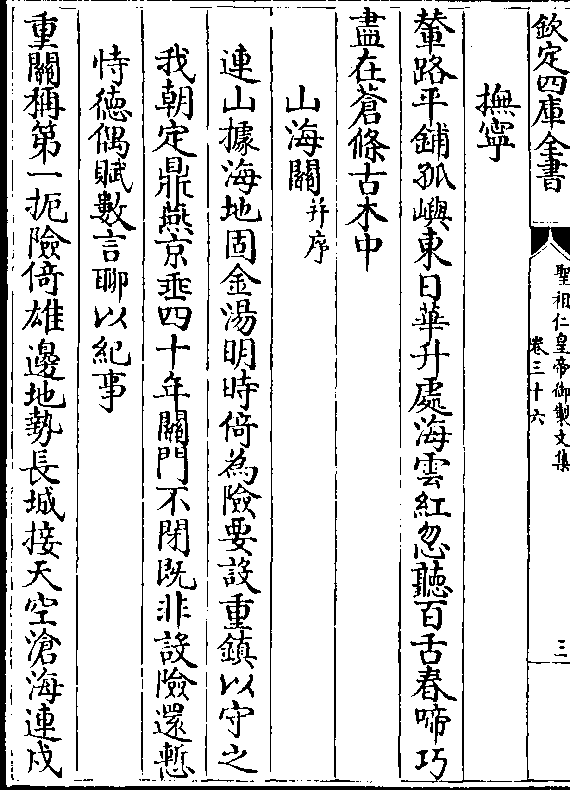 欽定四庫全書
聖祖仁皇帝御製文集
卷三十六
三
撫寧
輦路平鋪孤嶼東日華升處海雲紅忽聽百舌春啼巧
盡在蒼條古木中
山海關并序
連山據海地固金湯明時倚為險要設重鎮以守之
我朝定鼎燕京垂四十年關門不閉既非設險還慙
恃德偶賦數言聊以紀事
重關稱第一扼險倚雄邊地勢長城接天空滄海連戍